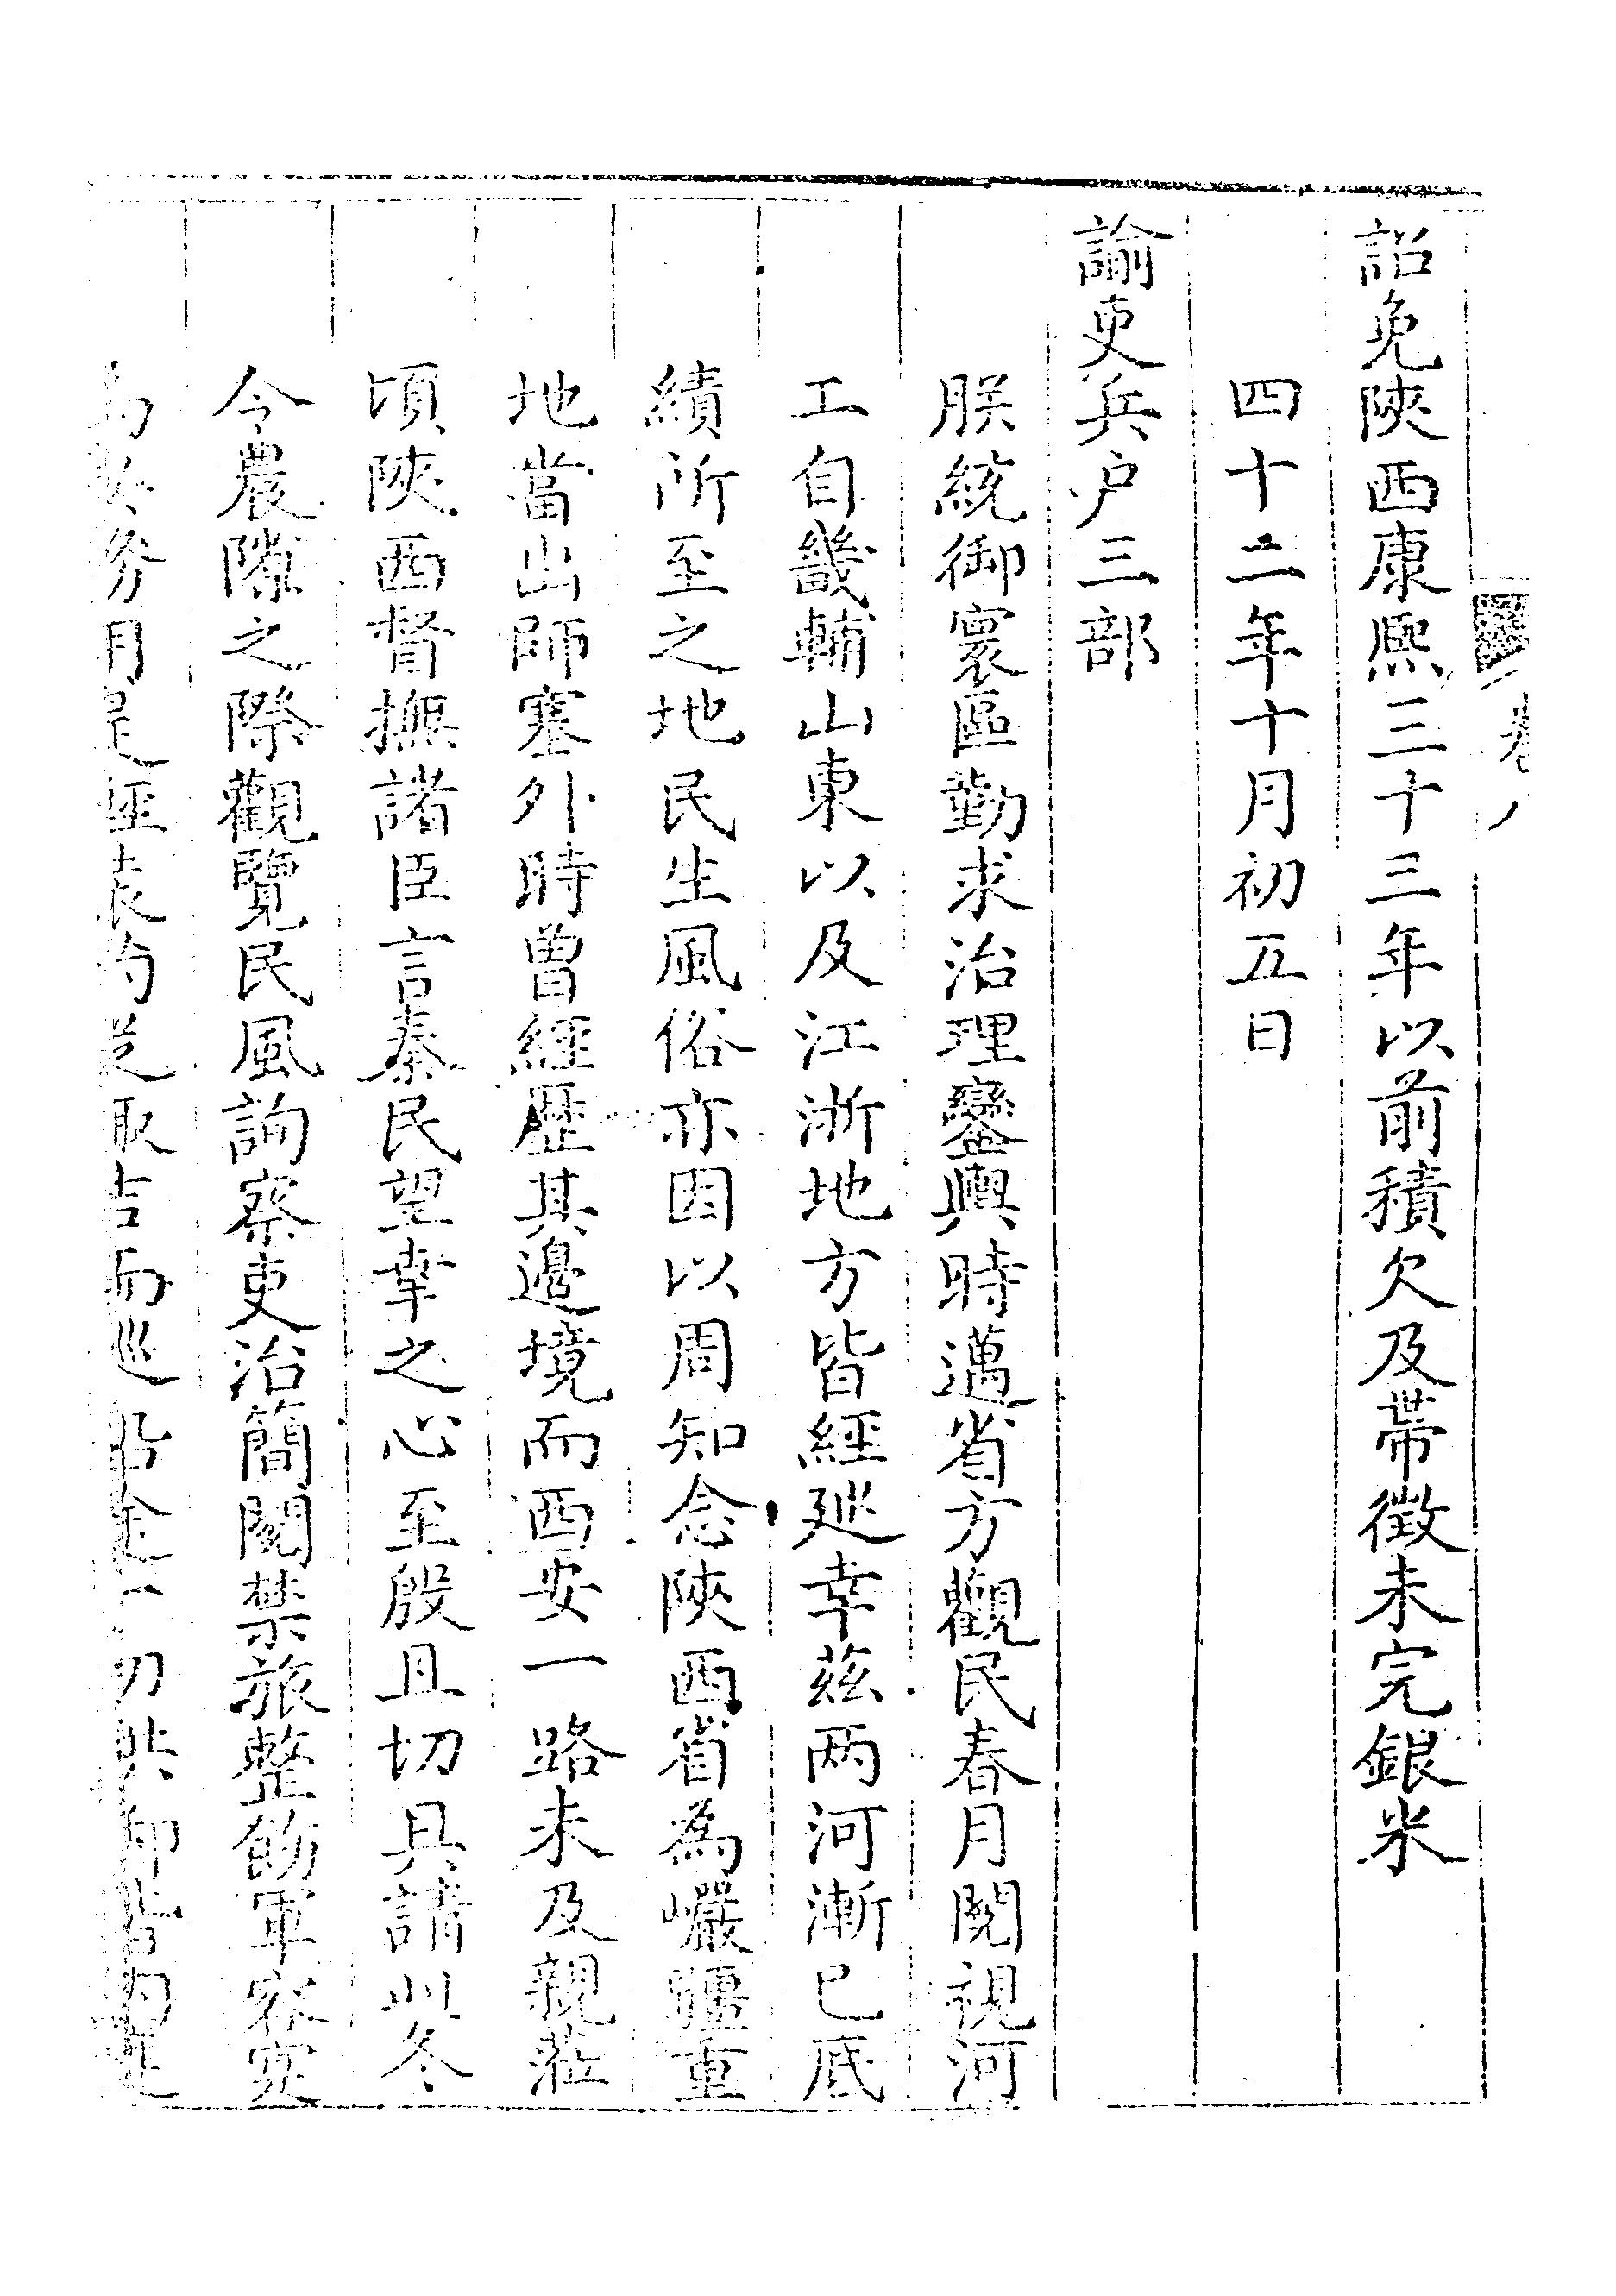 卷八
詔免陝西康熙三十三年以前積欠及帶徵未完銀米
四十二年十月初五日
諭吏兵户三部
朕統御寰區勤求治理鑾輿時邁省方觀民春月閱視河
工自畿輔山東以及江浙地方皆經廵幸兹两河漸已底
績所至之地民生風俗亦因以周知念陝西省為巖疆重
地當出師塞外時曽經歷其邊境而西安一路未及親蒞
頃陝西督撫諸臣言秦民望幸之心至殷且切具請此冬
令農隙之際觀覽民風詢察吏治簡閱禁旅整飭軍容寔
為要務用是取吉而廵沿途一切供御皆内廷